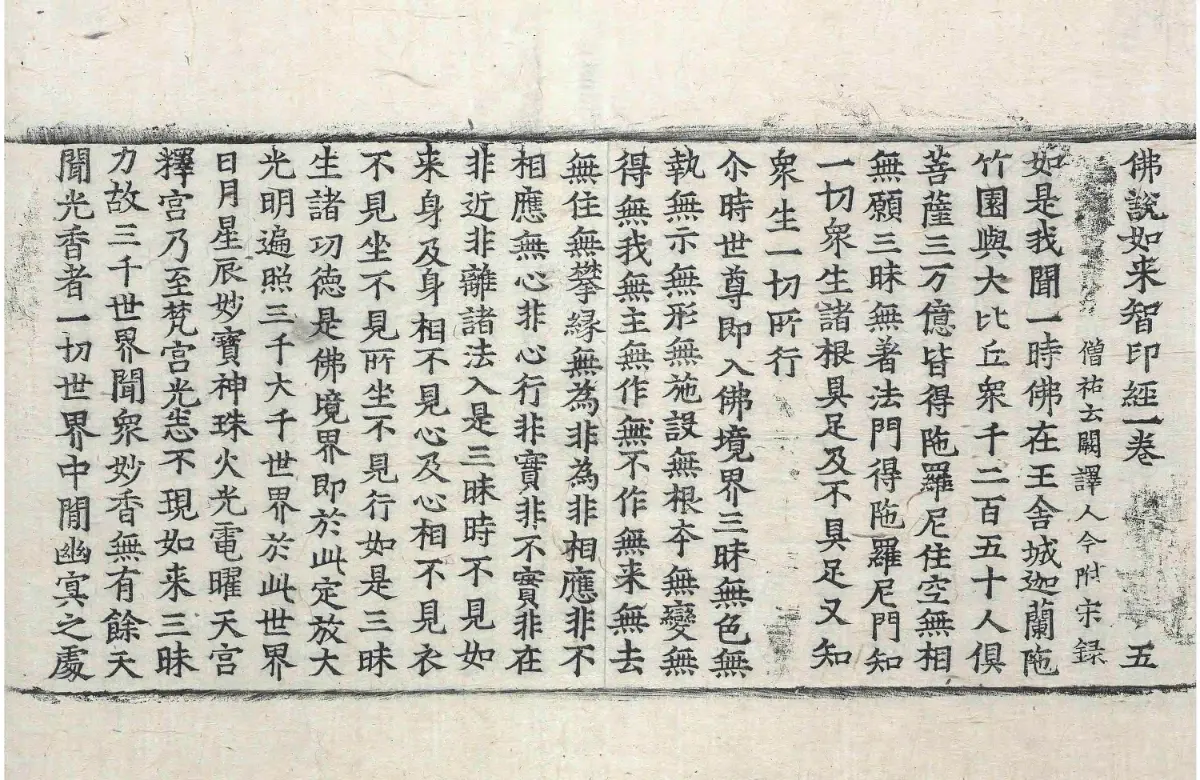 佛說如来智印經一卷 五
僧祐云闕譯人今附宋録
如是我聞一時佛在王舍城迦蘭陁
竹園與大比丘衆千二百五十人俱
菩薩三万億皆得陁羅尼住空無相
無願三昧無著法門得陁羅尼門知
一切衆生諸根具足及不具足又知
衆生一切所行
尒時世尊即入佛境界三昧無色無
執無示無形無施設無根夲無變無
得無我無主無作無不作無来無去
無住無攀縁無為非為非相應非不
相應無心非心行非實非不實非在
非近非離諸法入是三昧時不見如
来身及身相不見心及心相不見衣
不見坐不見所坐不見行如是三昧
生諸功德是佛境界即於此定放大
光明遍照三千大千世界於此世界
日月星辰妙寶神珠火光電曜天宮
釋宮乃至梵宮光悉不現如来三昧
力故三千世界聞衆妙香無有餘天
聞光香者一切世界中閒幽㝠之處